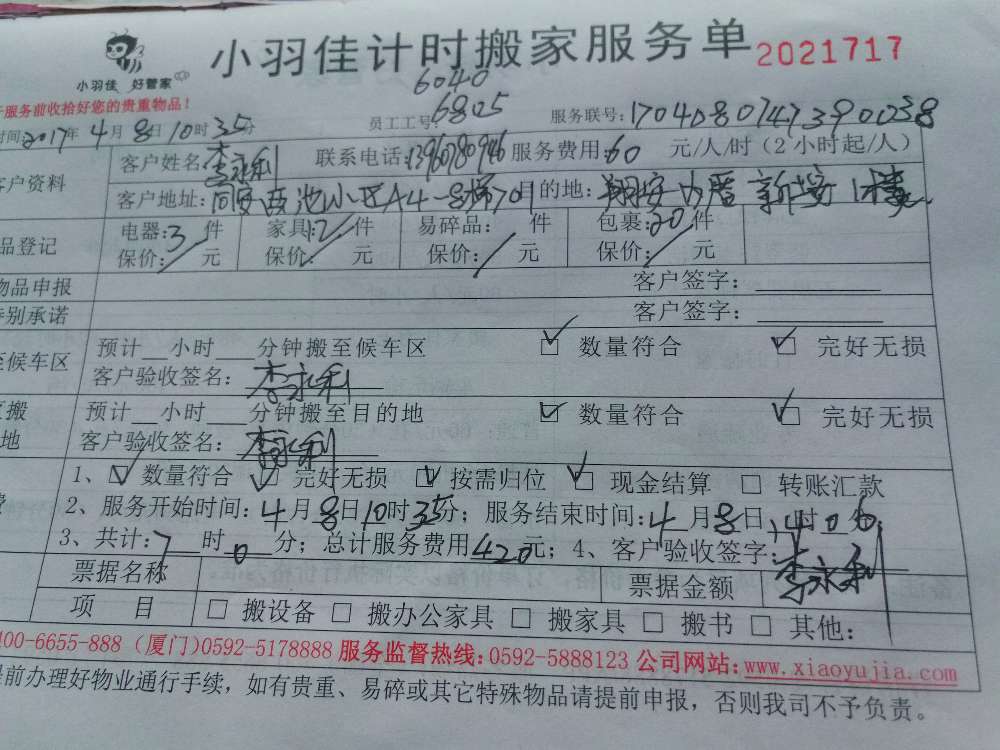 小羽佳计时搬家服务单 2021717
小羽佳 好管家
服务前收拾好您的贵重物品!
6040
时间:2017年4月8日10时35分 员工工号:6805 服务联号:
客户资料 客户姓名:李永利 联系电话:13960780946 服务费用:60 元/人/时(2小时起/人)
客户地址:同安西池小区A4-8梯701 目的地:翔安内厝新垵
品登记 电器:3件 家具:2件 易碎品: 件 包裹:20件
保价:/元 保价:/元 保价:/元 保价:/元
物品申报 客户签字:
特别承诺 客户签字:
至候车区 预计__小时___分钟搬至候车区 ☑ 数量符合 ☑ 完好无损
客户验收签名:李永利
搬 预计__小时___分钟搬至目的地 ☑ 数量符合 ☑ 完好无损
地 客户验收签名:李永利
1、☑ 数量符合 ☑ 完好无损 ☑ 按需归位 ☑ 现金结算 □ 转账汇款
2、服务开始时间:4月8日10时35分;服务结束时间:4月8日14时0
3、共计:7时0分;总计服务费用420元;4、客户验收签字:李永利
票据名称 票据金额
项 目 □ 搬设备 □ 搬办公家具 □ 搬家具 □ 搬书 □ 其他:
400-6655-888 (厦门)0592-5178888 服务监督热线:0592-5888123 公司网站:www.xiaoyujia.com
提前办理好物业通行手续,如有贵重、易碎或其它特殊物品请提前申报,否则我司不予负责。